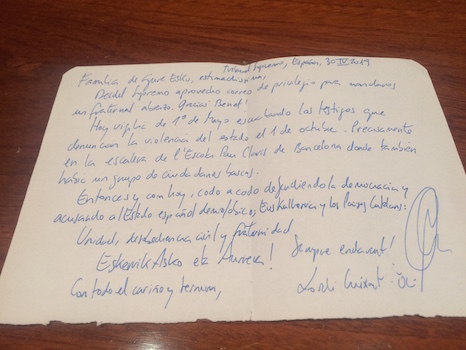 Tribunal Supremo, España, 30 IV 2019
Familia de Gure Esku, estimadíssima,
Desde l Supremo aprovecho correo de privilegio para mandaros
un fraternal abrazo. Gracias Benet!
Hoy vigilia de 1º de Mayo escuchando los testigos que
denuncian la violencia del estado el 1 de octubre. Precisamente
en la escalera de l'Escola Pau Claris de Barcelona donde también
había un grupo de ciudadanos bascos.
Entonces y como hoy, codo a codo defendiendo la democracia y
acusando al Estado español demofóbico; Euskalherria y los Països Catalans:
Unidad, desobediencia civil y fraternidad
Eskerrik Asko eta Aurrera! Sempre endavant!
Con todo el cariño y ternura, Jordi Cuixart